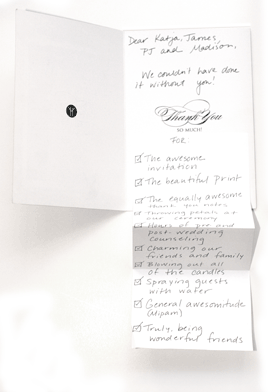 Dear Katja, James,
PJ and Madison,
We couldn't have done
it without you!
Thank You
SO MUCH!
FOR:
The awesome
invitation
The beautiful print
The equally awesome
thank you notes
Throwing petals at
our ceremony
Hours of pre and
post-wedding
counseling
Charming our
friends and family
Blowing out all
of the candles
Spraying guests
with water
General awesomitude
(Alipam)
Truly, being
wonderful friends